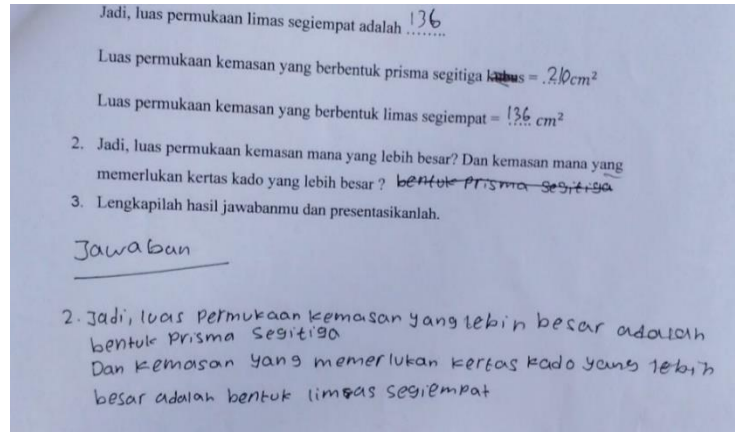 Jadi, luas permukaan limas segiempat adalah 136
Luas permukaan kemasan yang berbentuk prisma segitiga kubus = 210 cm²
Luas permukaan kemasan yang berbentuk limas segiempat = 136 cm²
2. Jadi, luas permukaan kemasan mana yang lebih besar? Dan kemasan mana yang
memerlukan kertas kado yang lebih besar ? bentuk prisma segitiga
3. Lengkapilah hasil jawabanmu dan presentasikanlah.
Jawaban
2. Jadi, luas permukaan kemasan yang lebih besar adalah
bentuk prisma segitiga
Dan kemasan yang memerlukan kertas kado yang lebih
besar adalah bentuk limas segiempat